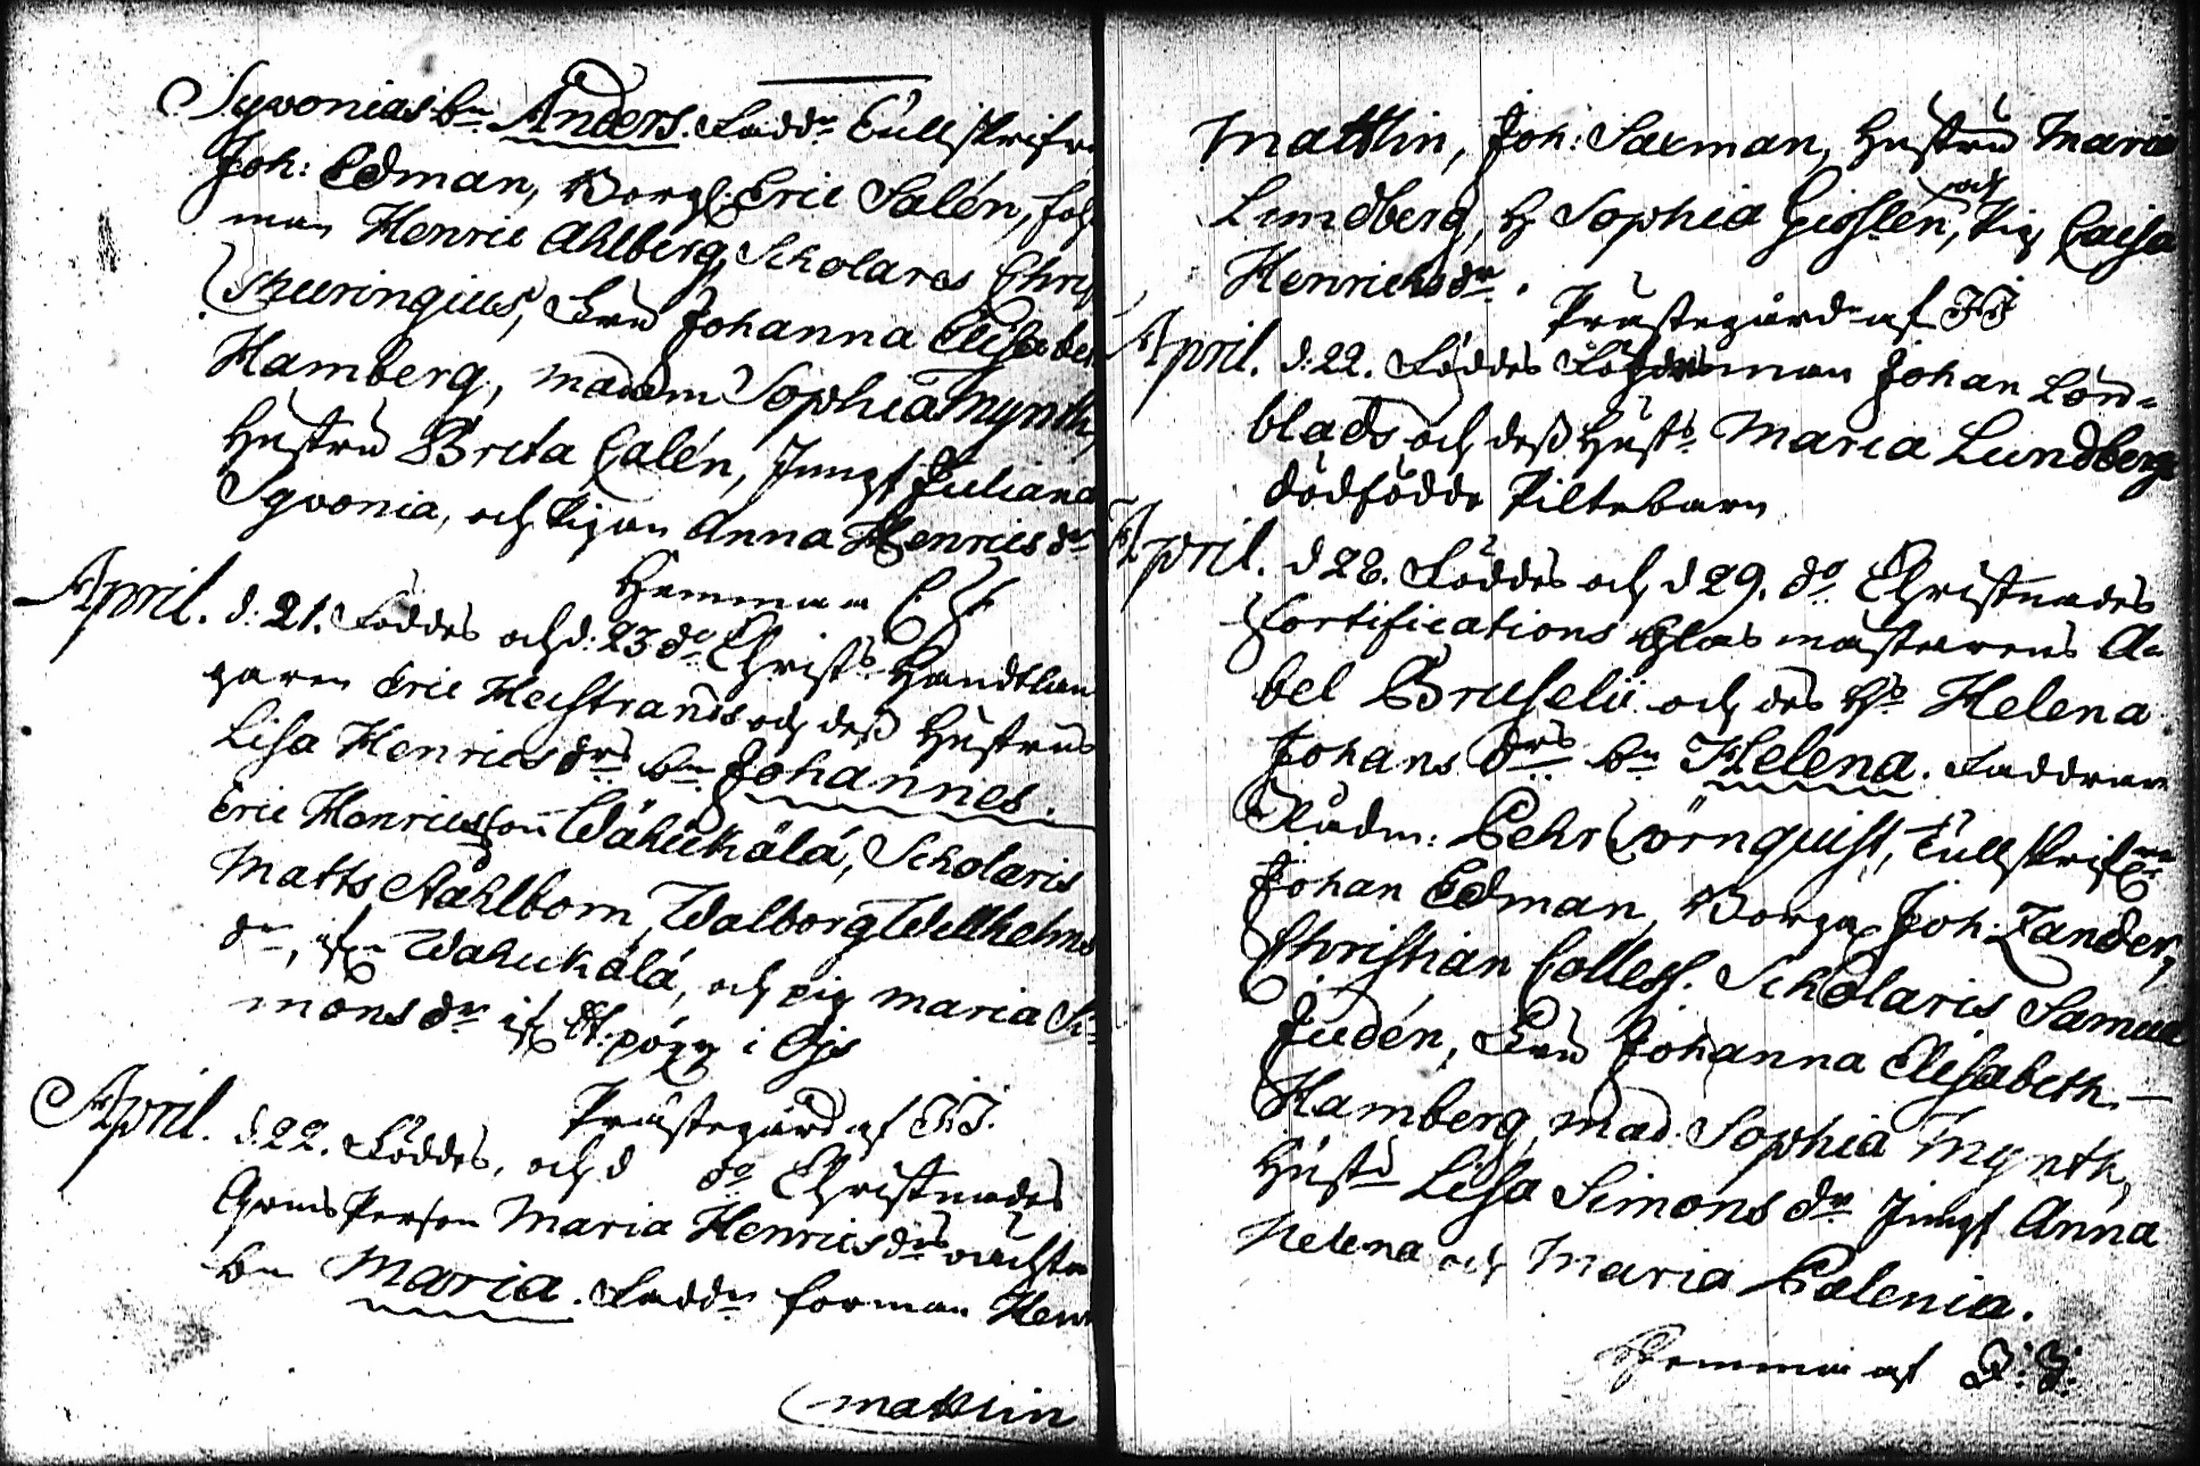 Sgvonias bn Anders. Faddr Tullskrifvn
Joh: Edman, Borg. Eric Salén, 
man Henric Ahlberg, Scholares Chris
Thuringius, Fru Johanna Elisabet
Hamberg, Madam Sophia Mynth,
Hustru Brita Calén, Jungf Juliana
Sgvonia, och Pigan Anna Henricsdr
Hemma
April. d: 21. Föddes och d: 23 do Christs Handtlan
garen Eric Hecstrands och dess Hustrus
Lisa Henricsdrs bn Johannes.
Eric Henricsson Wähäkälä, Scholaris
Matts Stahlbom, Walborg Willhelms
dr, ifr Wahukälä, och pig Maria Si
monsdr ifr
Prästegård af II.
April. d. 22. Föddes, och d do Christnades
Person Maria Henricsdrs oächta
bn Maria. Faddr forman Hen
Matthin
Matthin, Joh: Saxman, Hustru Maria
Lundberg, H Sophia Gisslén, och Pig Caisa
Henricksdr.
Prästegård af II
April. d. 22. Föddes man Johan Lön=
blads och dess Hust Maria Lundbergs
dödfödde Piltebarn
April. d 28. Föddes och d 29. do Christnades
Fortifications Glas mästarens A=
bel Bruselii och des Hs Helena
Johansdrs bn Helena. Faddrar
Rådm: Pehr Törnquist, Tullskrifvn
Johan Edman, Borgar Joh. Zander,
Christian Colless. Scholaris Samuel
Judén, Fru Johanna Elisabeth
Hamberg, Mad. Sophia Mynth,
Hust Lisa Simonsdr Jungf Anna
Helena och Maria Polenia.
Hemma af I: I: